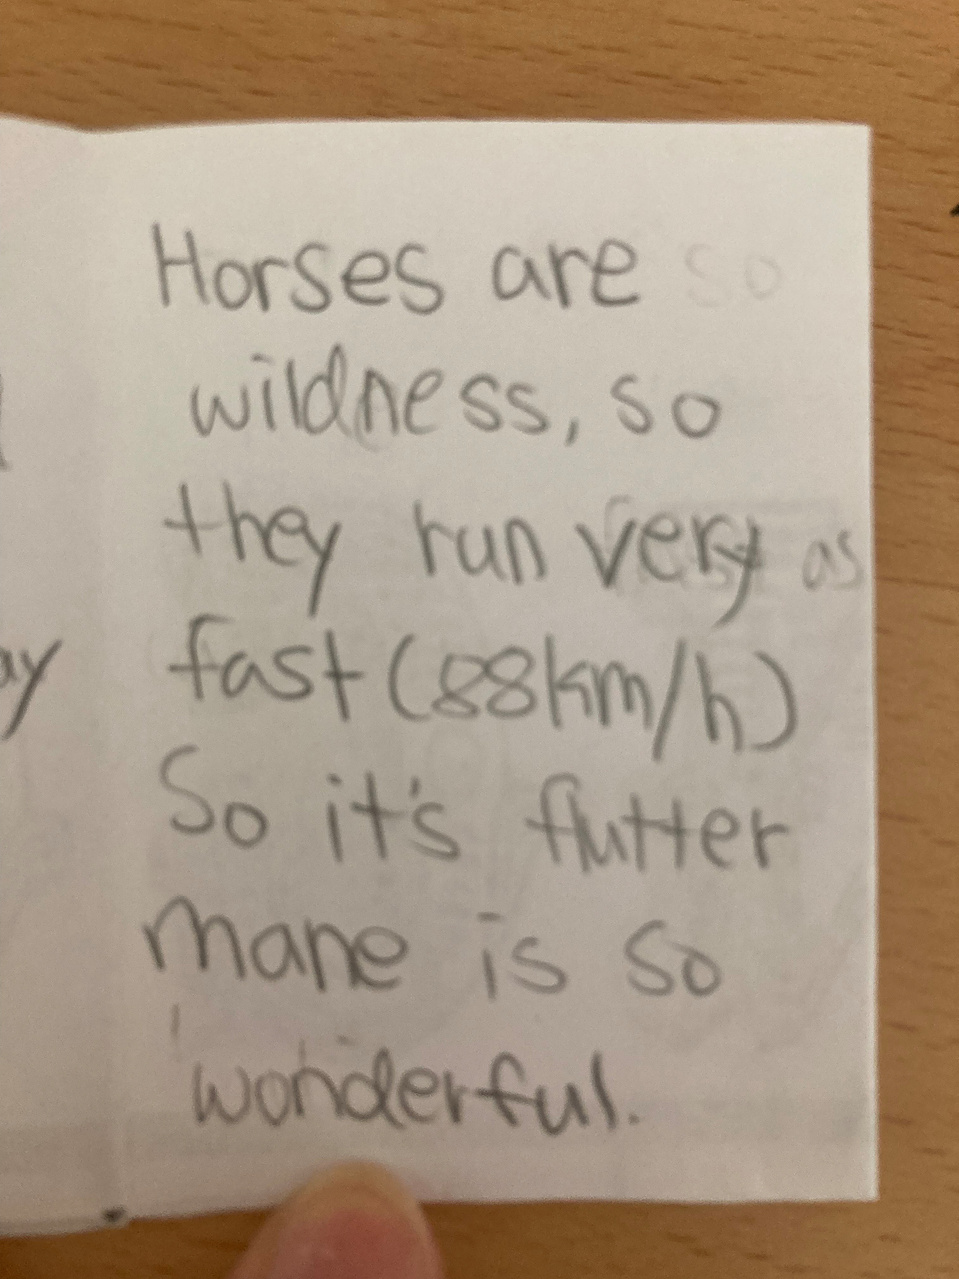 Horses are so
wildness, so
they run very as
fast (88km/h)
So it's flutter
mane is so
wonderful.
ay